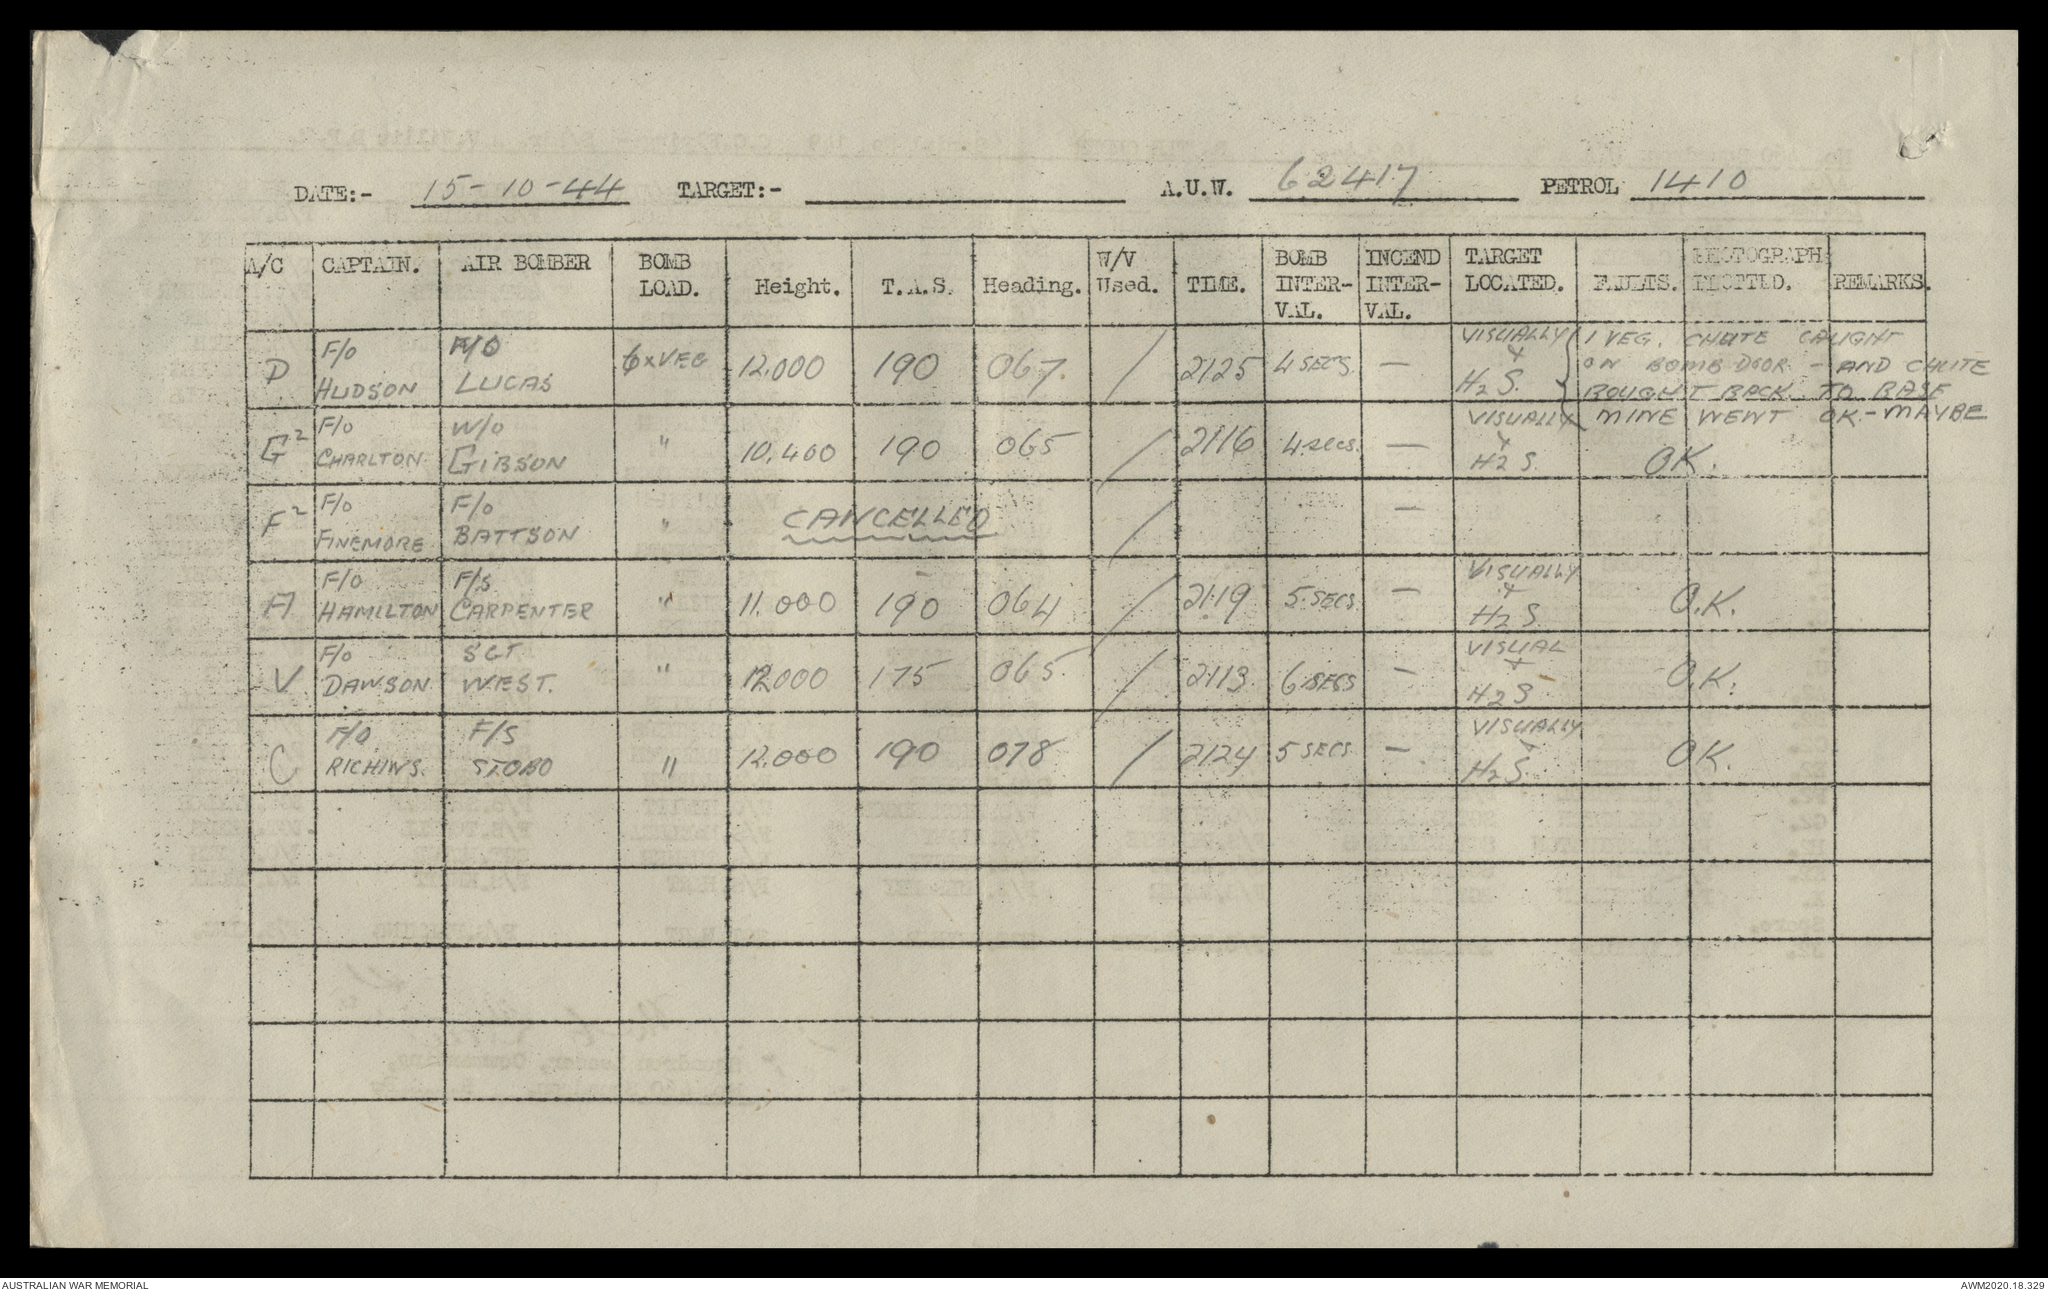 DATE:- 15-10-44 TARGET:- A.U.W. 62417 PETROL 1410
A/C CAPTAIN. AIR BOMBER BOMB LOAD. Height. T.A.S. Heading. W/V Used. TIME. BOMB INTER-VAL. INCEND INTER-VAL. TARGET LOCATED. FAULTS. PHOTOGRAPH PLOTTED. REMARKS.
D F/O HUDSON F/O LUCAS 6 x VEG 12.000 190 067. / 2125 4 SECS. — VISUALLY & H2S. 1 VEG. CHUTE CAUGHT
ON BOMB DOOR - AND CHUTE
BOUGHT BACK TO BASE
MINE WENT OK - MAYBE
G2 F/O CHARLTON W/O GIBSON " 10.400 190 065 / 2116 4 secs. — VISUALLY & H2S. OK.
F2 F/O FINEMORE F/O BATTSON " CANCELLED / —
A F/O HAMILTON F/S CARPENTER " 11.000 190 064 / 2119 5 SECS — VISUALLY & H2S O.K.
V F/O DAWSON SGT WEST. " 12000 175 065. / 2113. 6 SECS — VISUAL & H2S O.K.
C F/O RICHINS. F/S STOBO " 12.000 190 078 / 2124 5 SECS — VISUALLY & H2S. OK.
AUSTRALIAN WAR MEMORIAL AWM2020.18.329